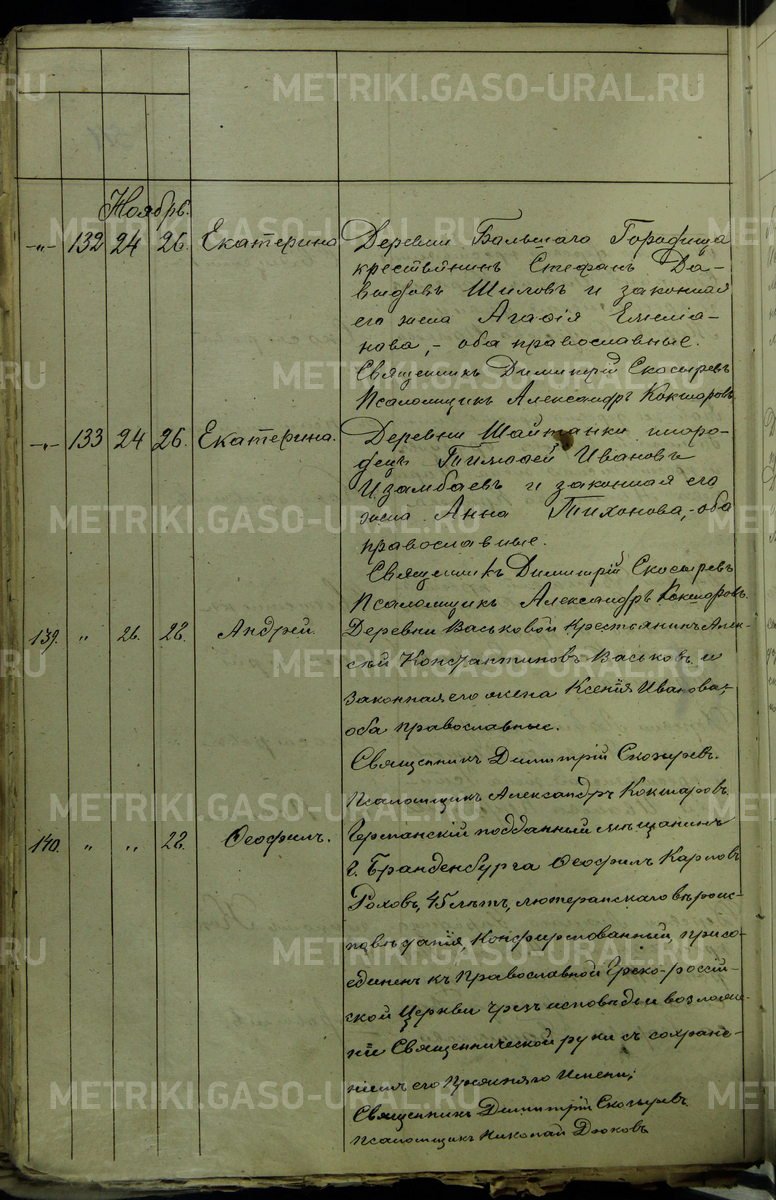 METRIKI.GASO-URAL.RU
Ноябрь.
-"- 132 24 26. Екатерина Деревни Большаго Городища
крестьянинъ Стефанъ Да-
выдовъ Шиловъ и законная
его жена Агафія Емеліа-
нова, - оба православные.
Священникъ Димитрій Скосыревъ
Псаломщикъ Александръ Кокшаровъ
-"- 133 24 26. Екатерина. Деревни Шайтанки иноро-
децъ Тимофей Ивановъ
Изамбаевъ и законная его
жена Анна Тихонова, - оба
православные.
Священникъ Димитрій Скосыревъ
Псаломщикъ Александръ Кокшаровъ.
139. " 26. 28. Андрей. Деревни Васьковой Крестьянинъ Алек-
сѣй Константиновъ Васьковъ и
законная его жена Ксенія Иванова;
оба православные.
Священникъ Димитрій Скосыревъ.
Псаломщикъ Александръ Кокшаровъ
140. " " 28. Ѳеофилъ. Германскій подданный мѣщанинъ
г. Бранденбурга Ѳеофилъ Карловъ
Роховъ, 45 лѣтъ, лютеранскаго вѣроис-
повѣданія, Конфирмованный, присо-
единенъ къ Православной Греко-россій-
ской Церкви чрезъ исповѣдь и возложе-
ніе Священнической руки съ сохране-
ніемъ его прежняго Имени;
Священникъ Димитрій Скосыревъ
псаломщикъ Николай Дюковъ